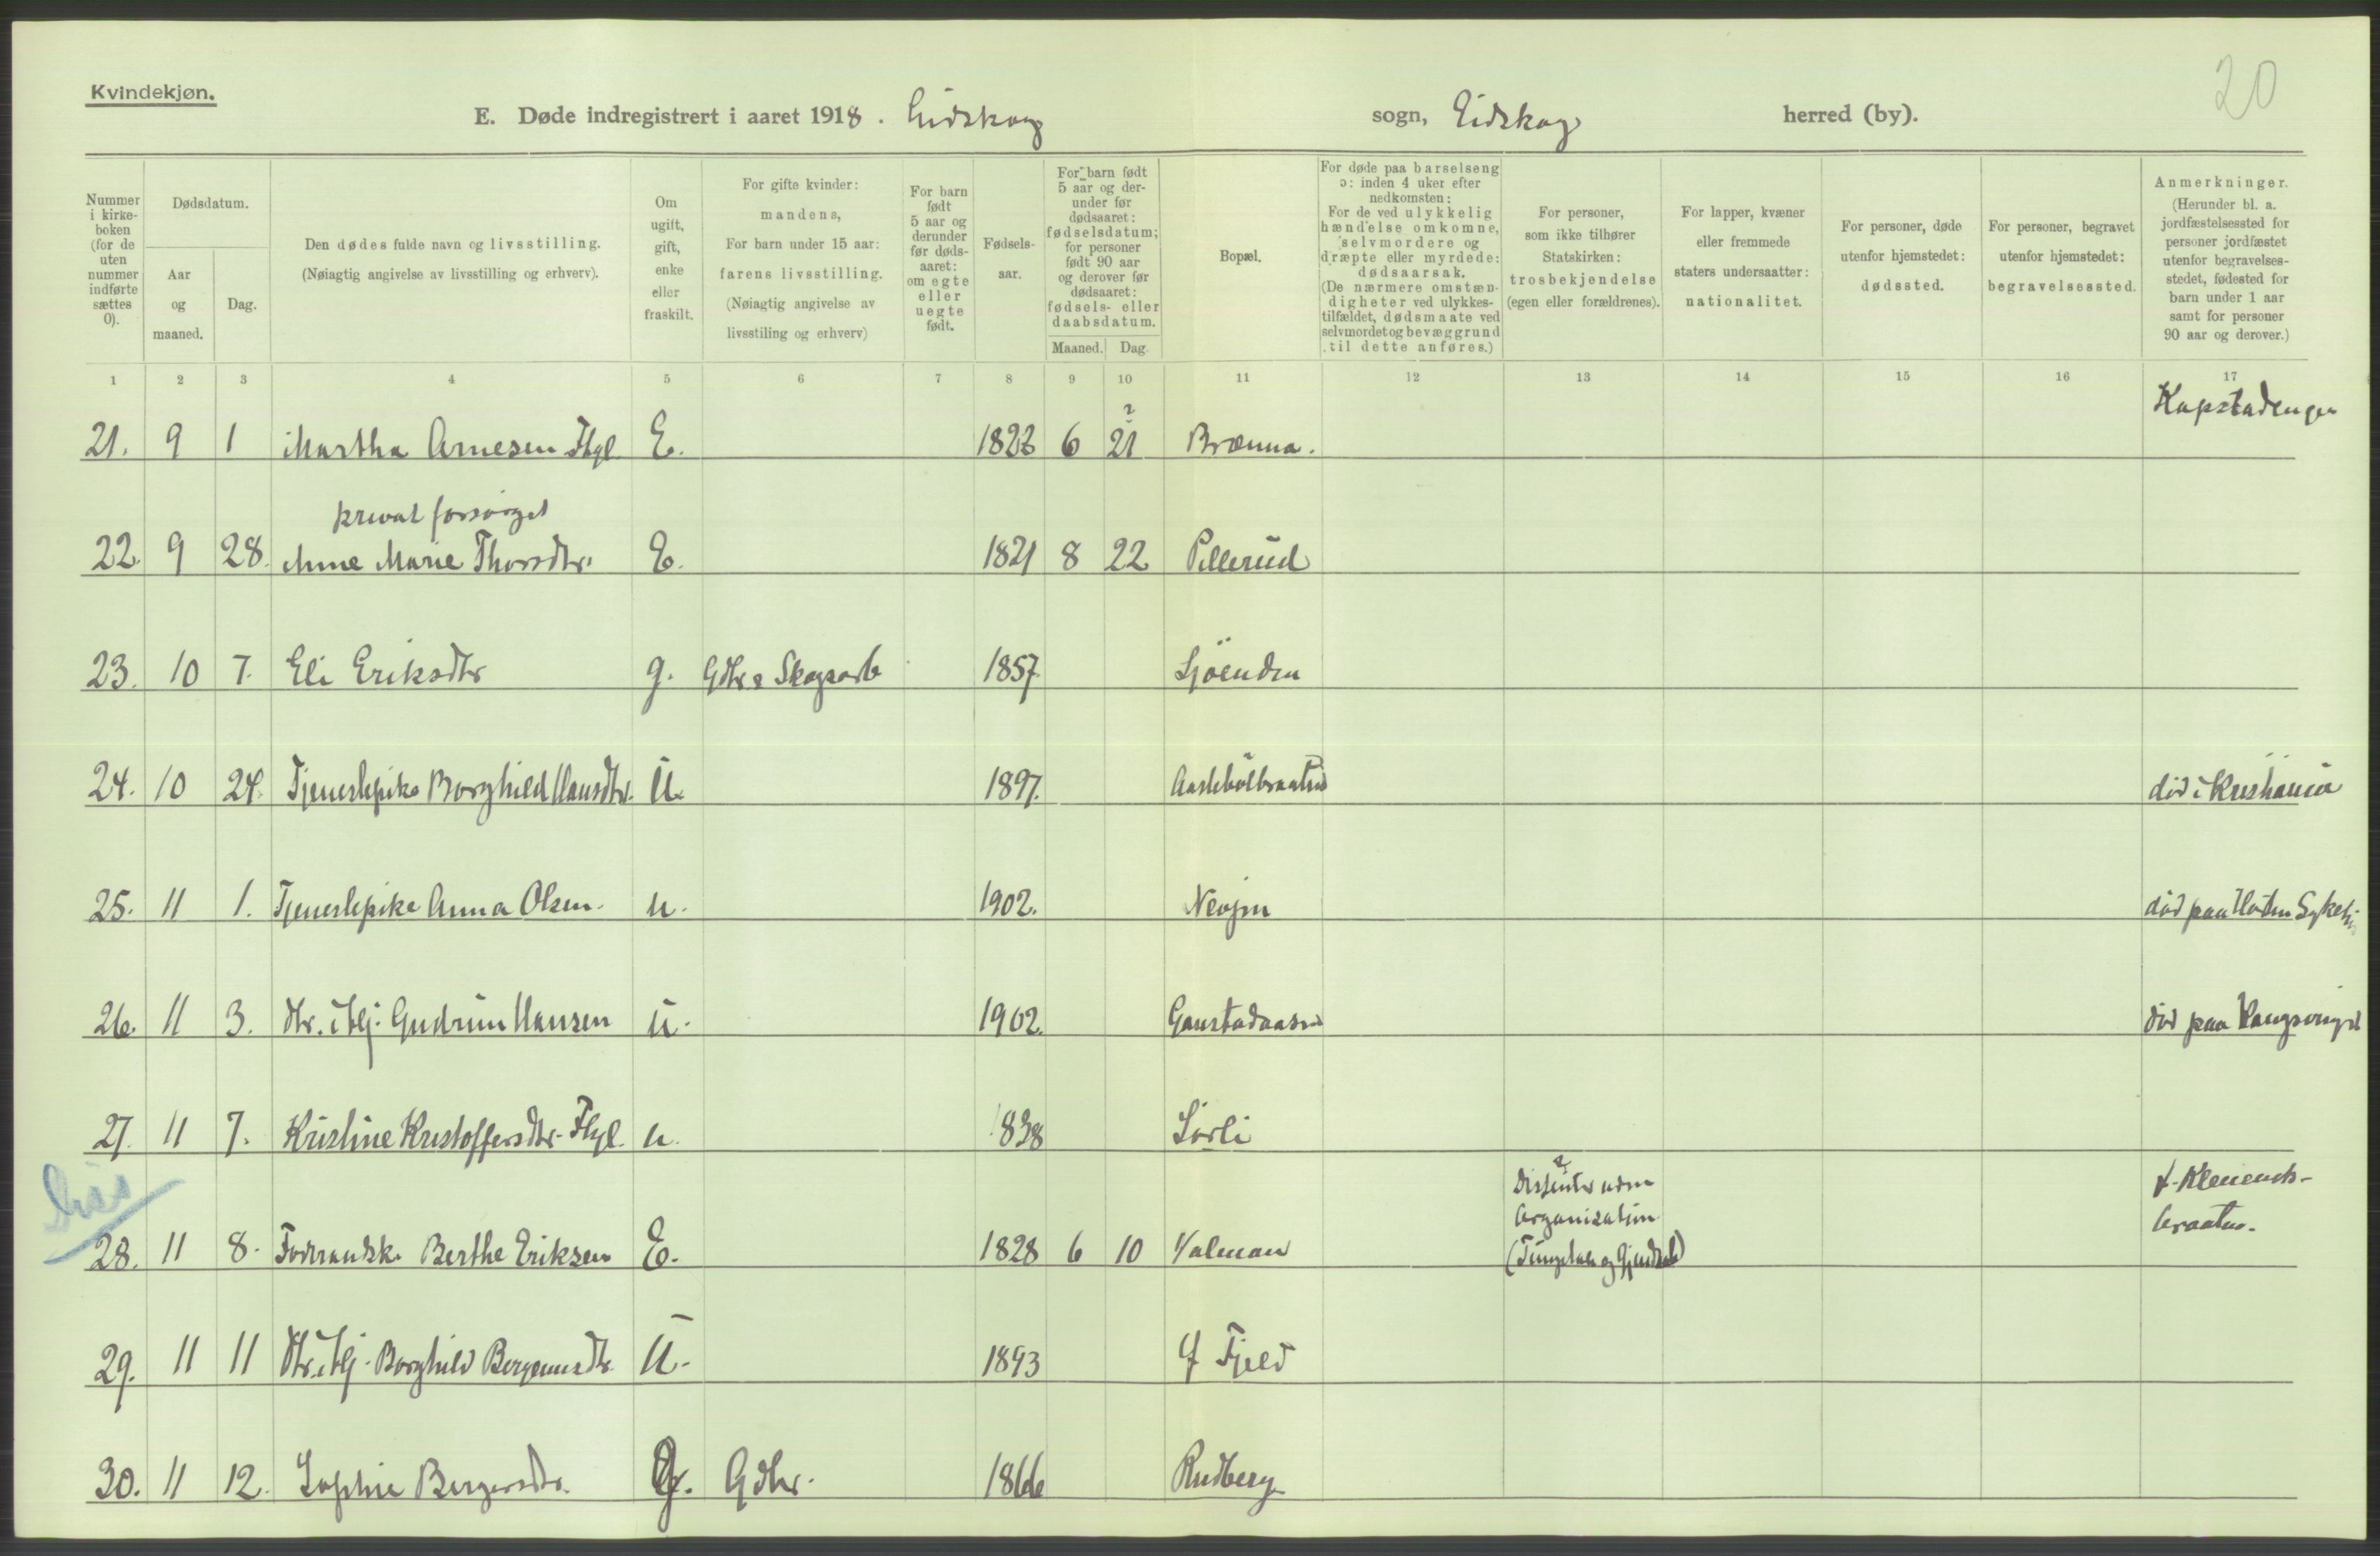 20
Kvindekjøn.
E. Døde indregistrert i aaret 1918. Eidskog sogn, Eidskog herred (by).
Nummer i kirke-boken (for de uten nummer indførte sættes 0).
Dødsdatum.
Aar og maaned.
Dag.
Den dødes fulde navn og livsstilling.
(Nøiagtig angivelse av livsstilling og erhverv).
Om ugift, gift, enke eller fraskilt.
For gifte kvinder: mandens, For barn under 15 aar: farens livsstilling. (Nøiagtig angivelse av livsstiling og erhverv)
For barn født 5 aar og derunder før døds-aaret: om egte eller uegte født.
Fødsels-aar.
For barn født 5 aar og der-under før dødsaaret: fødselsdatum; for personer født 90 aar og derover før dødsaaret: fødsels- eller daabsdatum.
Maaned. Dag.
Bopæl.
For døde paa barselseng ɔ: inden 4 uker efter nedkomsten: For de ved ulykkelig hændelse omkomne, selvmordere og dræpte eller myrdede: dødsaarsak. (De nærmere omstæn-digheter ved ulykkes-tilfældet, dødsmaate ved selvmordet og bevæggrund til dette anføres.)
For personer, som ikke tilhører Statskirken: trosbekjendelse (egen eller forældrenes).
For lapper, kvæner eller fremmede staters undersaatter: nationalitet.
For personer, døde utenfor hjemstedet: dødssted.
For personer, begravet utenfor hjemstedet: begravelsessted.
Anmerkninger. (Herunder bl. a. jordfæstelsessted for personer jordfæstet utenfor begravelses-stedet, fødested for barn under 1 aar samt for personer 90 aar og derover.)
1 2 3 4 5 6 7 8 9 10 11 12 13 14 15 16 17
21. 9 1 Martha Arnesen Fhgl. E. 1823 6 21 Brænna. Kapstadengen
privat forsørget
22. 9 28. Anne Marie Thorsdtr. E. 1821 8 22 Pillerud
23. 10 7. Eli Eriksdtr g. Gdbr. & Skogsarb 1857. Sjøenden
24. 10 24. Tjenestepike Borghild Hansdtr. U. 1897. død i Kristiania
25. 11 1. Tjenestepike Anna Olsen. u. 1902. død paa
26. 11 3. dtr. i hj. Gudrun Hansen u. 1902. Gaustadaasen død paa Kongsvinger
27. 11 7. Kristine Kristoffersdtr. Fhgl. u. 1838 Sørli
Diss
28. 11 8. Berthe Eriksen E. 1828 6 10 Valman
Dissenter uden
Organisation
f. Klemends-
braaten.
29. 11 11 dtr. i hj. Borghild U. 1893 Fjeld
30. 11 12. Sophie Bergersdtr. G. Gdbr. 1866 Rudberg